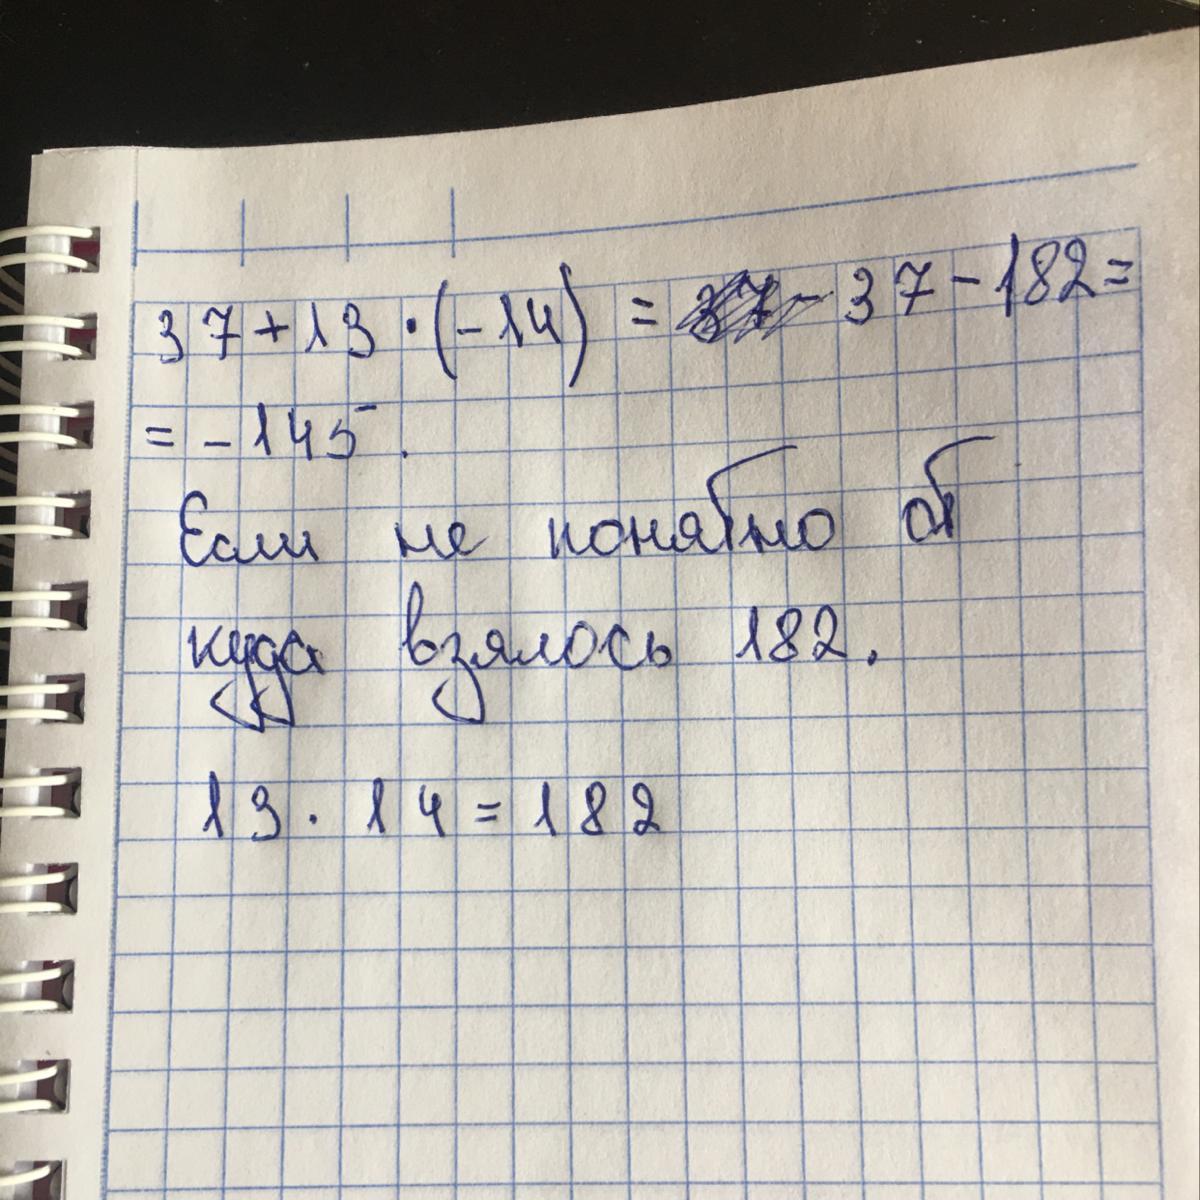 37+13·(-14) = 37-182=
= -145.
Если не понятно от
куда взялось 182.
13 · 14 = 182